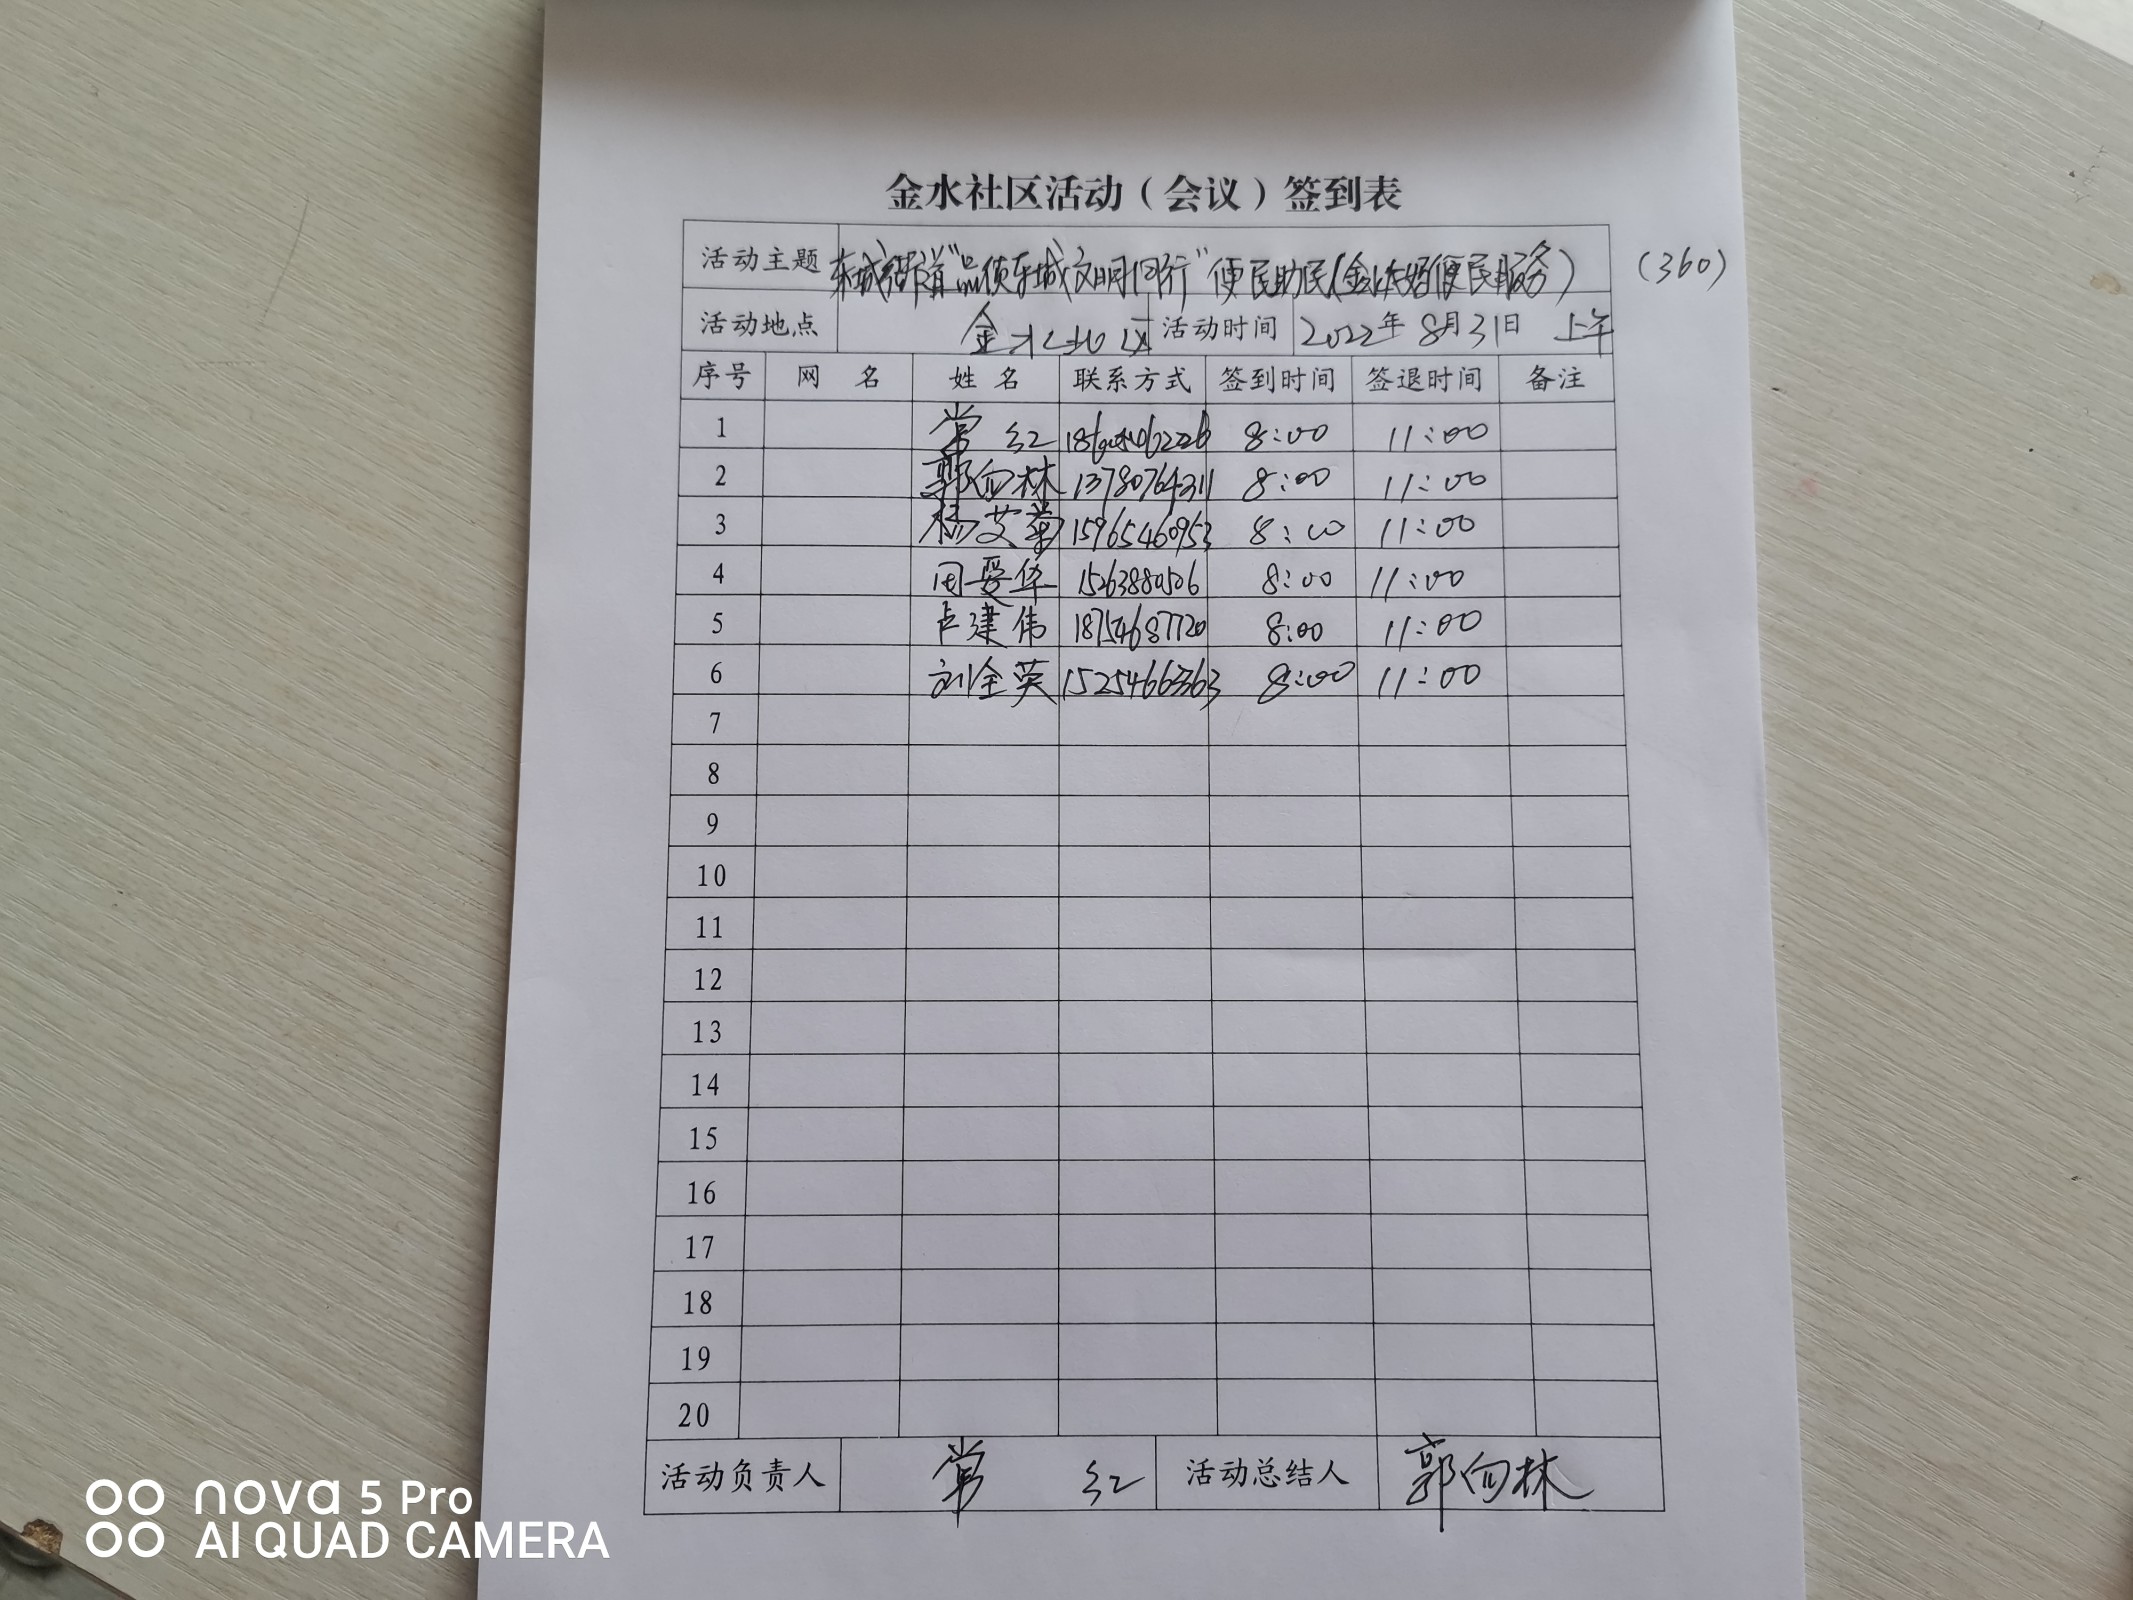 金水社区活动（会议）签到表
活动主题 东城街道“品质东城文明同行”便民助民(金水 便民服务) (360)
活动地点 金水社区 活动时间 2022年8月31日 上午
序号 网 名 姓 名 联系方式 签到时间 签退时间 备注
1 常 红 8:00 11:00
2 郭向林 13780764311 8:00 11:00
3 杨艾菊 15965460953 8:00 11:00
4 周爱华 15263880506 8:00 11:00
5 卢建伟 18754687720 8:00 11:00
6 刘金英 15254663363 8:00 11:00
7
8
9
10
11
12
13
14
15
16
17
18
19
20
活动负责人 常 红 活动总结人 郭向林
nova 5 Pro
AI QUAD CAMERA